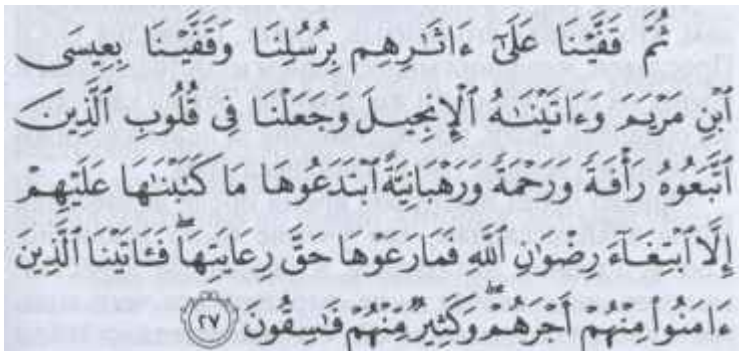 ثُمَّ قَفَّيْنَا عَلَىٰٓ ءَاثَٰرِهِم بِرُسُلِنَا وَقَفَّيْنَا بِعِيسَى
ٱبْنِ مَرْيَمَ وَءَاتَيْنَٰهُ ٱلْإِنجِيلَ وَجَعَلْنَا فِى قُلُوبِ ٱلَّذِينَ
ٱتَّبَعُوهُ رَأْفَةً وَرَحْمَةً وَرَهْبَانِيَّةً ٱبْتَدَعُوهَا مَا كَتَبْنَٰهَا عَلَيْهِمْ
إِلَّا ٱبْتِغَآءَ رِضْوَٰنِ ٱللَّهِ فَمَا رَعَوْهَا حَقَّ رِعَايَتِهَاۖ فَـَٔاتَيْنَا ٱلَّذِينَ
ءَامَنُوا۟ مِنْهُمْ أَجْرَهُمْۖ وَكَثِيرٌ مِّنْهُمْ فَٰسِقُونَ ٢٧